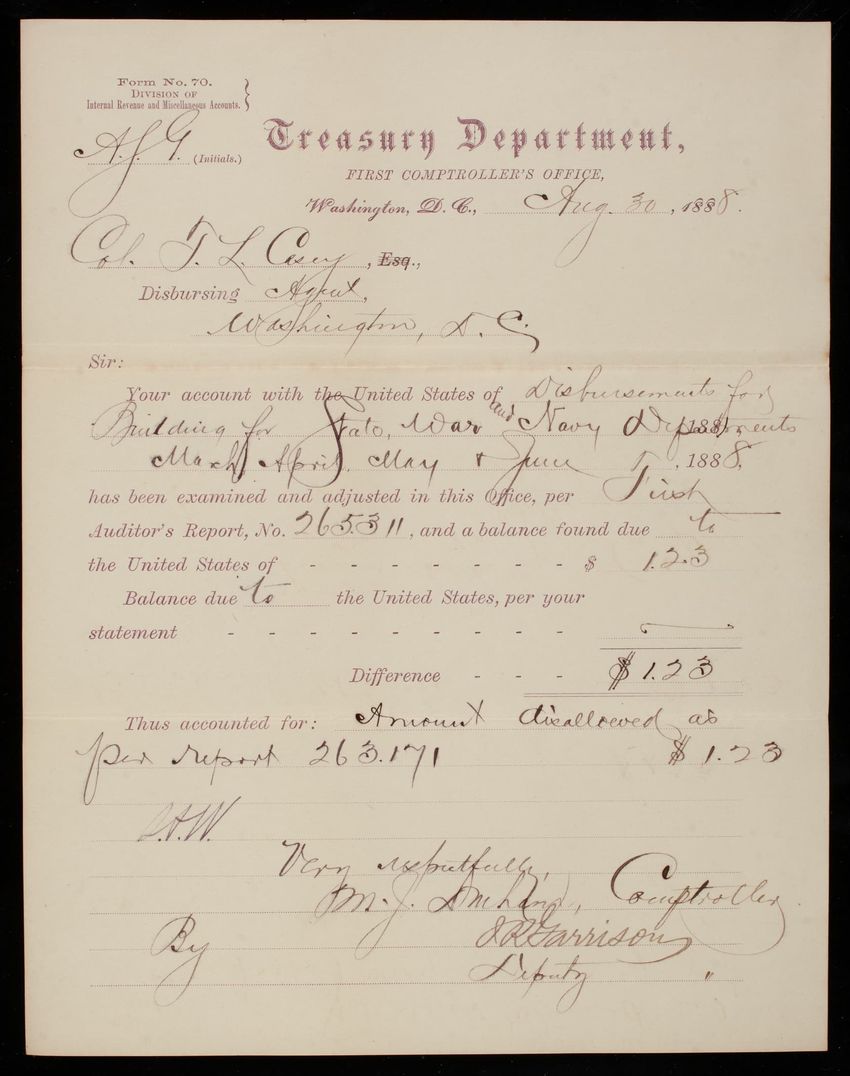 Form No. 70.
DIVISION OF
Internal Revenue and Miscellaneous Accounts.
A. J. G. (Initials.)
Treasury Department,
FIRST COMPTROLLER'S OFFICE,
Washington, D. C., Aug. 30, 1888.
Col. T. L. Casey, Esq.,
Disbursing Agent,
Washington, D. C.
Sir:
Your account with the United States of Disbursements for
Building for State, War and Navy Departments 188
March, April, May & June, 1888,
has been examined and adjusted in this Office, per First
Auditor's Report, No. 265311, and a balance found due to
the United States of - - - - - - - - $ 1.23
Balance due to the United States, per your
statement - - - - - - - - - -
Difference - - - $1.23
Thus accounted for: Amount disallowed as
per report 263.171 $1.23
Very respectfully,
M. J. Durham, Comptroller
By J R Garrison
Deputy "